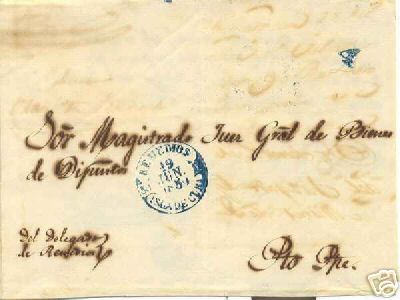 Sor Magistrado Juez Gral de Bienes
de Difuntos
REMEDIOS
19
JUN
ISLA DE CUBA
Del Delegado
de Remedios
Pto Ppe.